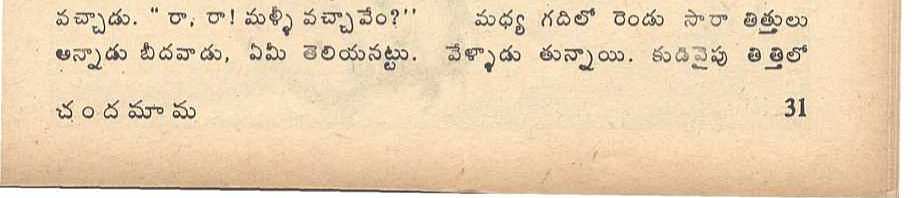 వచ్చాడు. "రా, రా! మళ్ళీ వచ్చావేం?''
అన్నాడు బీదవాడు, ఏమీ తెలియనట్టు.
మధ్య గదిలో రెండు సారా తిత్తులు
వేళ్ళాడు తున్నాయి. కుడివైపు తిత్తిలో
చందమామ
31